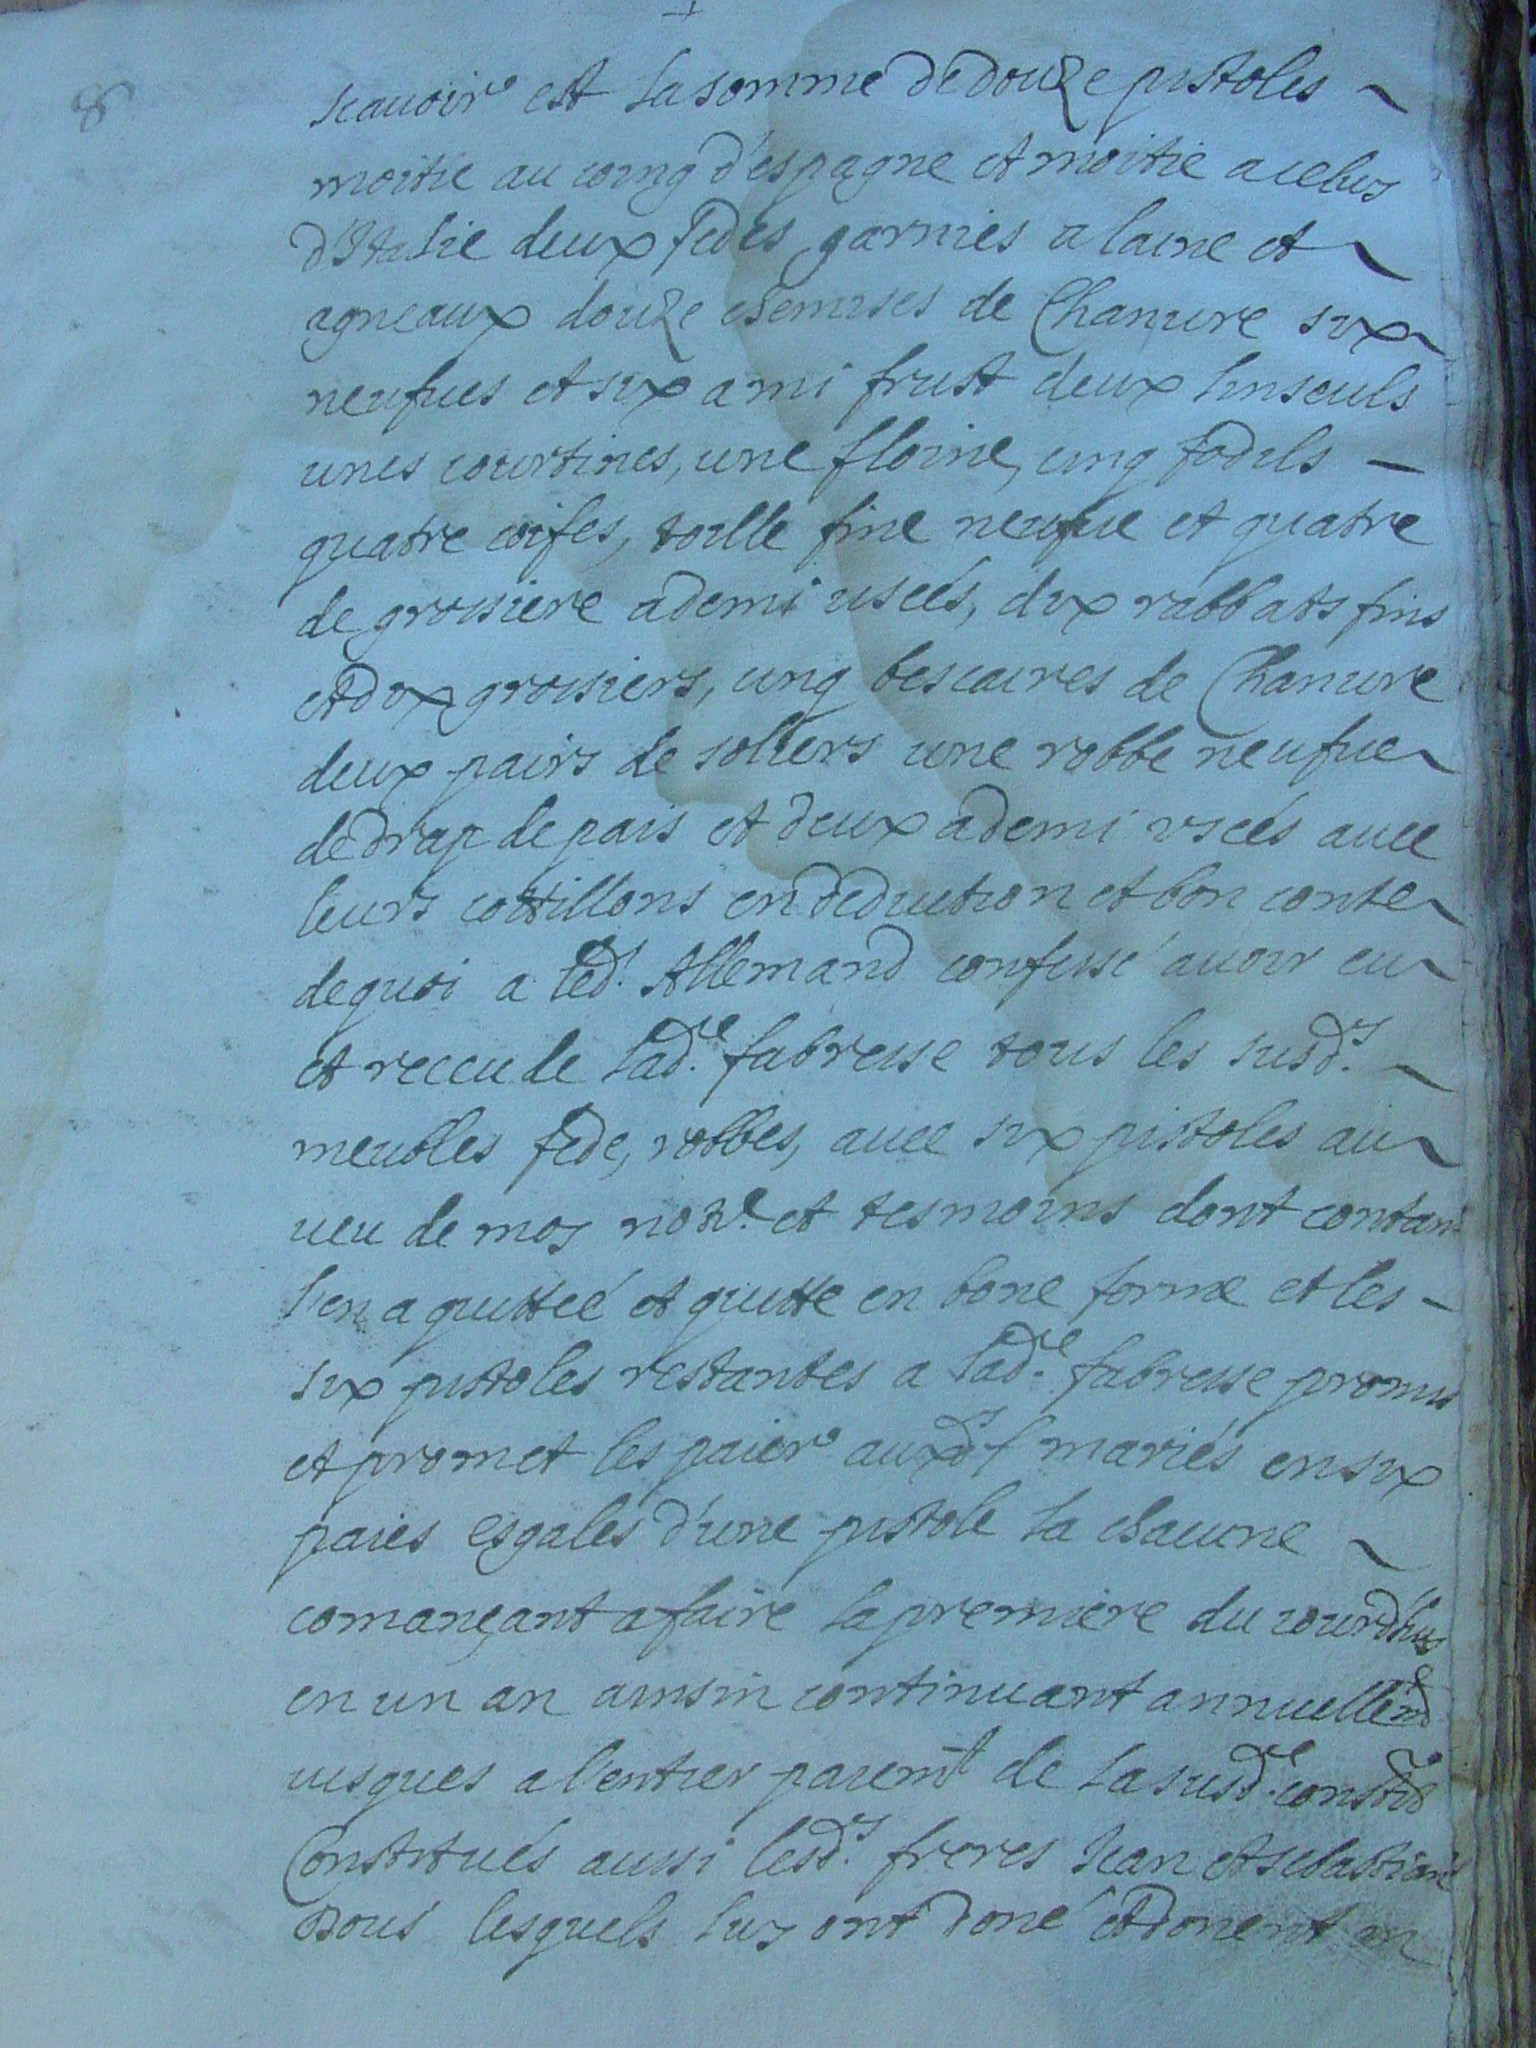 8
scauoir est la somme de douze pistoles
moitie au coing d'espagne et moitie a celuy
d'Italie deux fedes garnies a laine et
agneaux douze chemises de Chanure six
neufues et six a mi frust deux linseuls
unes courtines, une floine, cinq fodils
quatre coifes, toille fine neufue et quatre
de grossiere a demi usées, dix rabbats fins
et dix grossiers, cinq bescaires de Chanure
deux pairs de soliers une robbe neufue
de drap de pais et deux a demi usées auec
leurs cottillons en deduction et bon conte
de quoi a led.t Allemand confessé auoir eu
et receu de lad.e fabresse tous les susd.s
meubles fede, robbes, auec six pistoles au
ueu de moy not.e et tesmoins dont contant
l'en a quittée et quitte en bone forme et les
six pistoles restantes a lad.e fabresse promis
et promet les paier auxd.s mariés en six
paies esgales d'une pistole la chacune
comançant a faire la premiere du iourd'huy
en un an ainsin continuant annuellem.t
iusques a l'entier paiem.t de la susd.e
Constitués aussi lesd.s freres Jean et sebastian
lesquels luy ont doné et donent